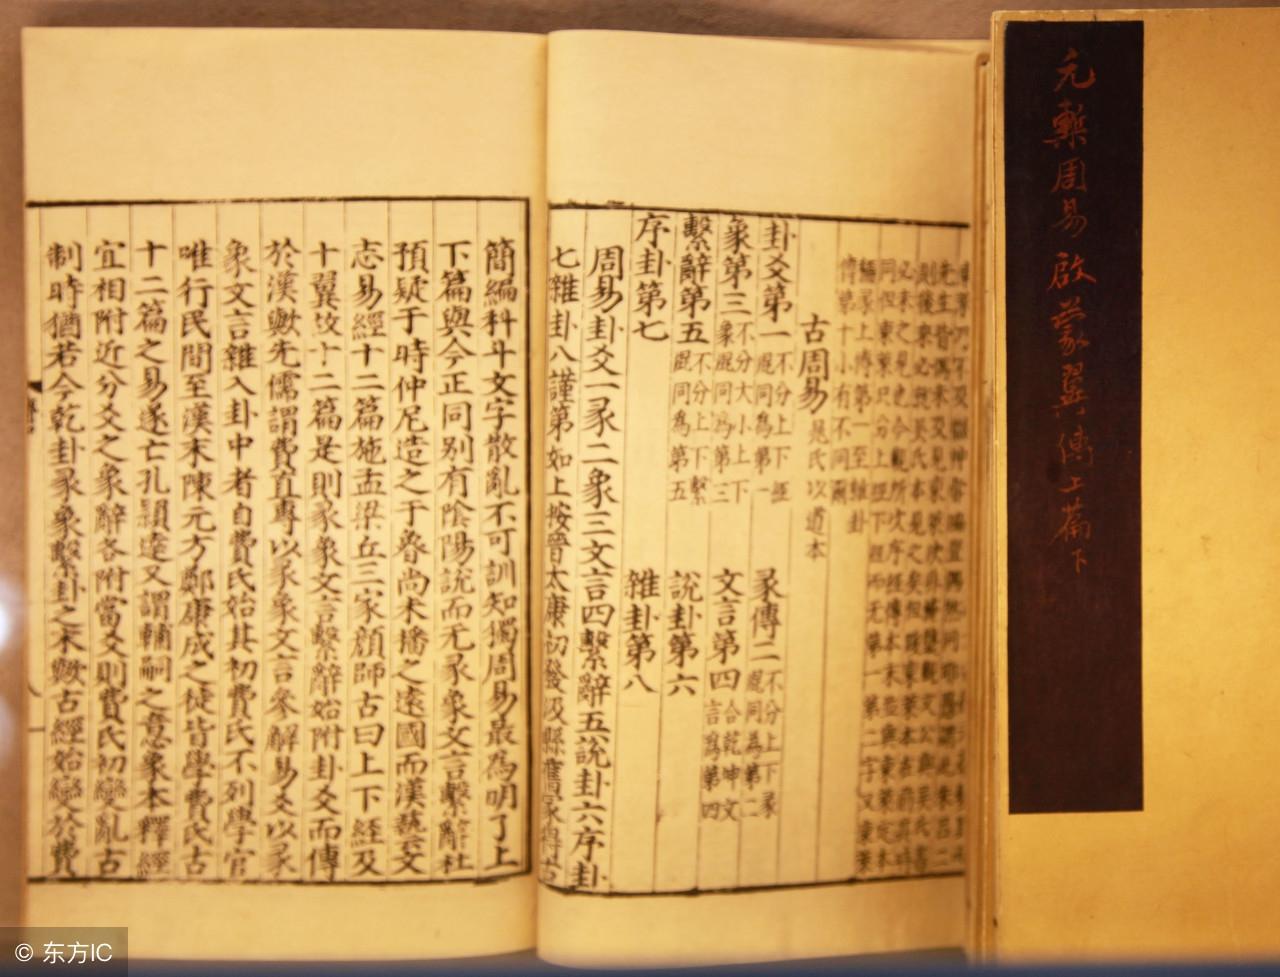 元槧周易啟蒙翼傳上篇下
傳第十小有不同爾
古周易晁氏以道本
卦爻第一不分上下經混同為第一
彖傳二不分上下彖混同為第二
象第三不分大小上下象混同為第三
文言第四合乾坤文言為第四
繫辭第五不分上下繫混同為第五
說卦第六
序卦第七
雜卦第八
周易卦爻一彖二象三文言四繫辭五說卦六序卦
七雜卦八謹第如上按晉太康初發汲縣舊冢得古
簡編科斗文字散亂不可訓知獨周易最為明了上
下篇與今正同別有陰陽說而无彖象文言繫辭杜
預疑于時仲尼造之于魯尚未播之遠國而漢藝文
志易經十二篇施孟梁丘三家顏師古曰上下經及
十翼故十二篇是則彖象文言繫辭始附卦爻而傳
於漢歟先儒謂費直專以彖象文言參解易爻以彖
象文言雜入卦中者自費氏始其初費氏不列學官
唯行民間至漢末陳元方鄭康成之徒皆學費氏古
十二篇之易遂亡孔穎達又謂輔嗣之意象本釋經
宜相附近分爻之象辭各附當爻則費氏初變亂古
制時猶若今乾卦彖象繫卦之末歟古經始變於費
© 东方IC